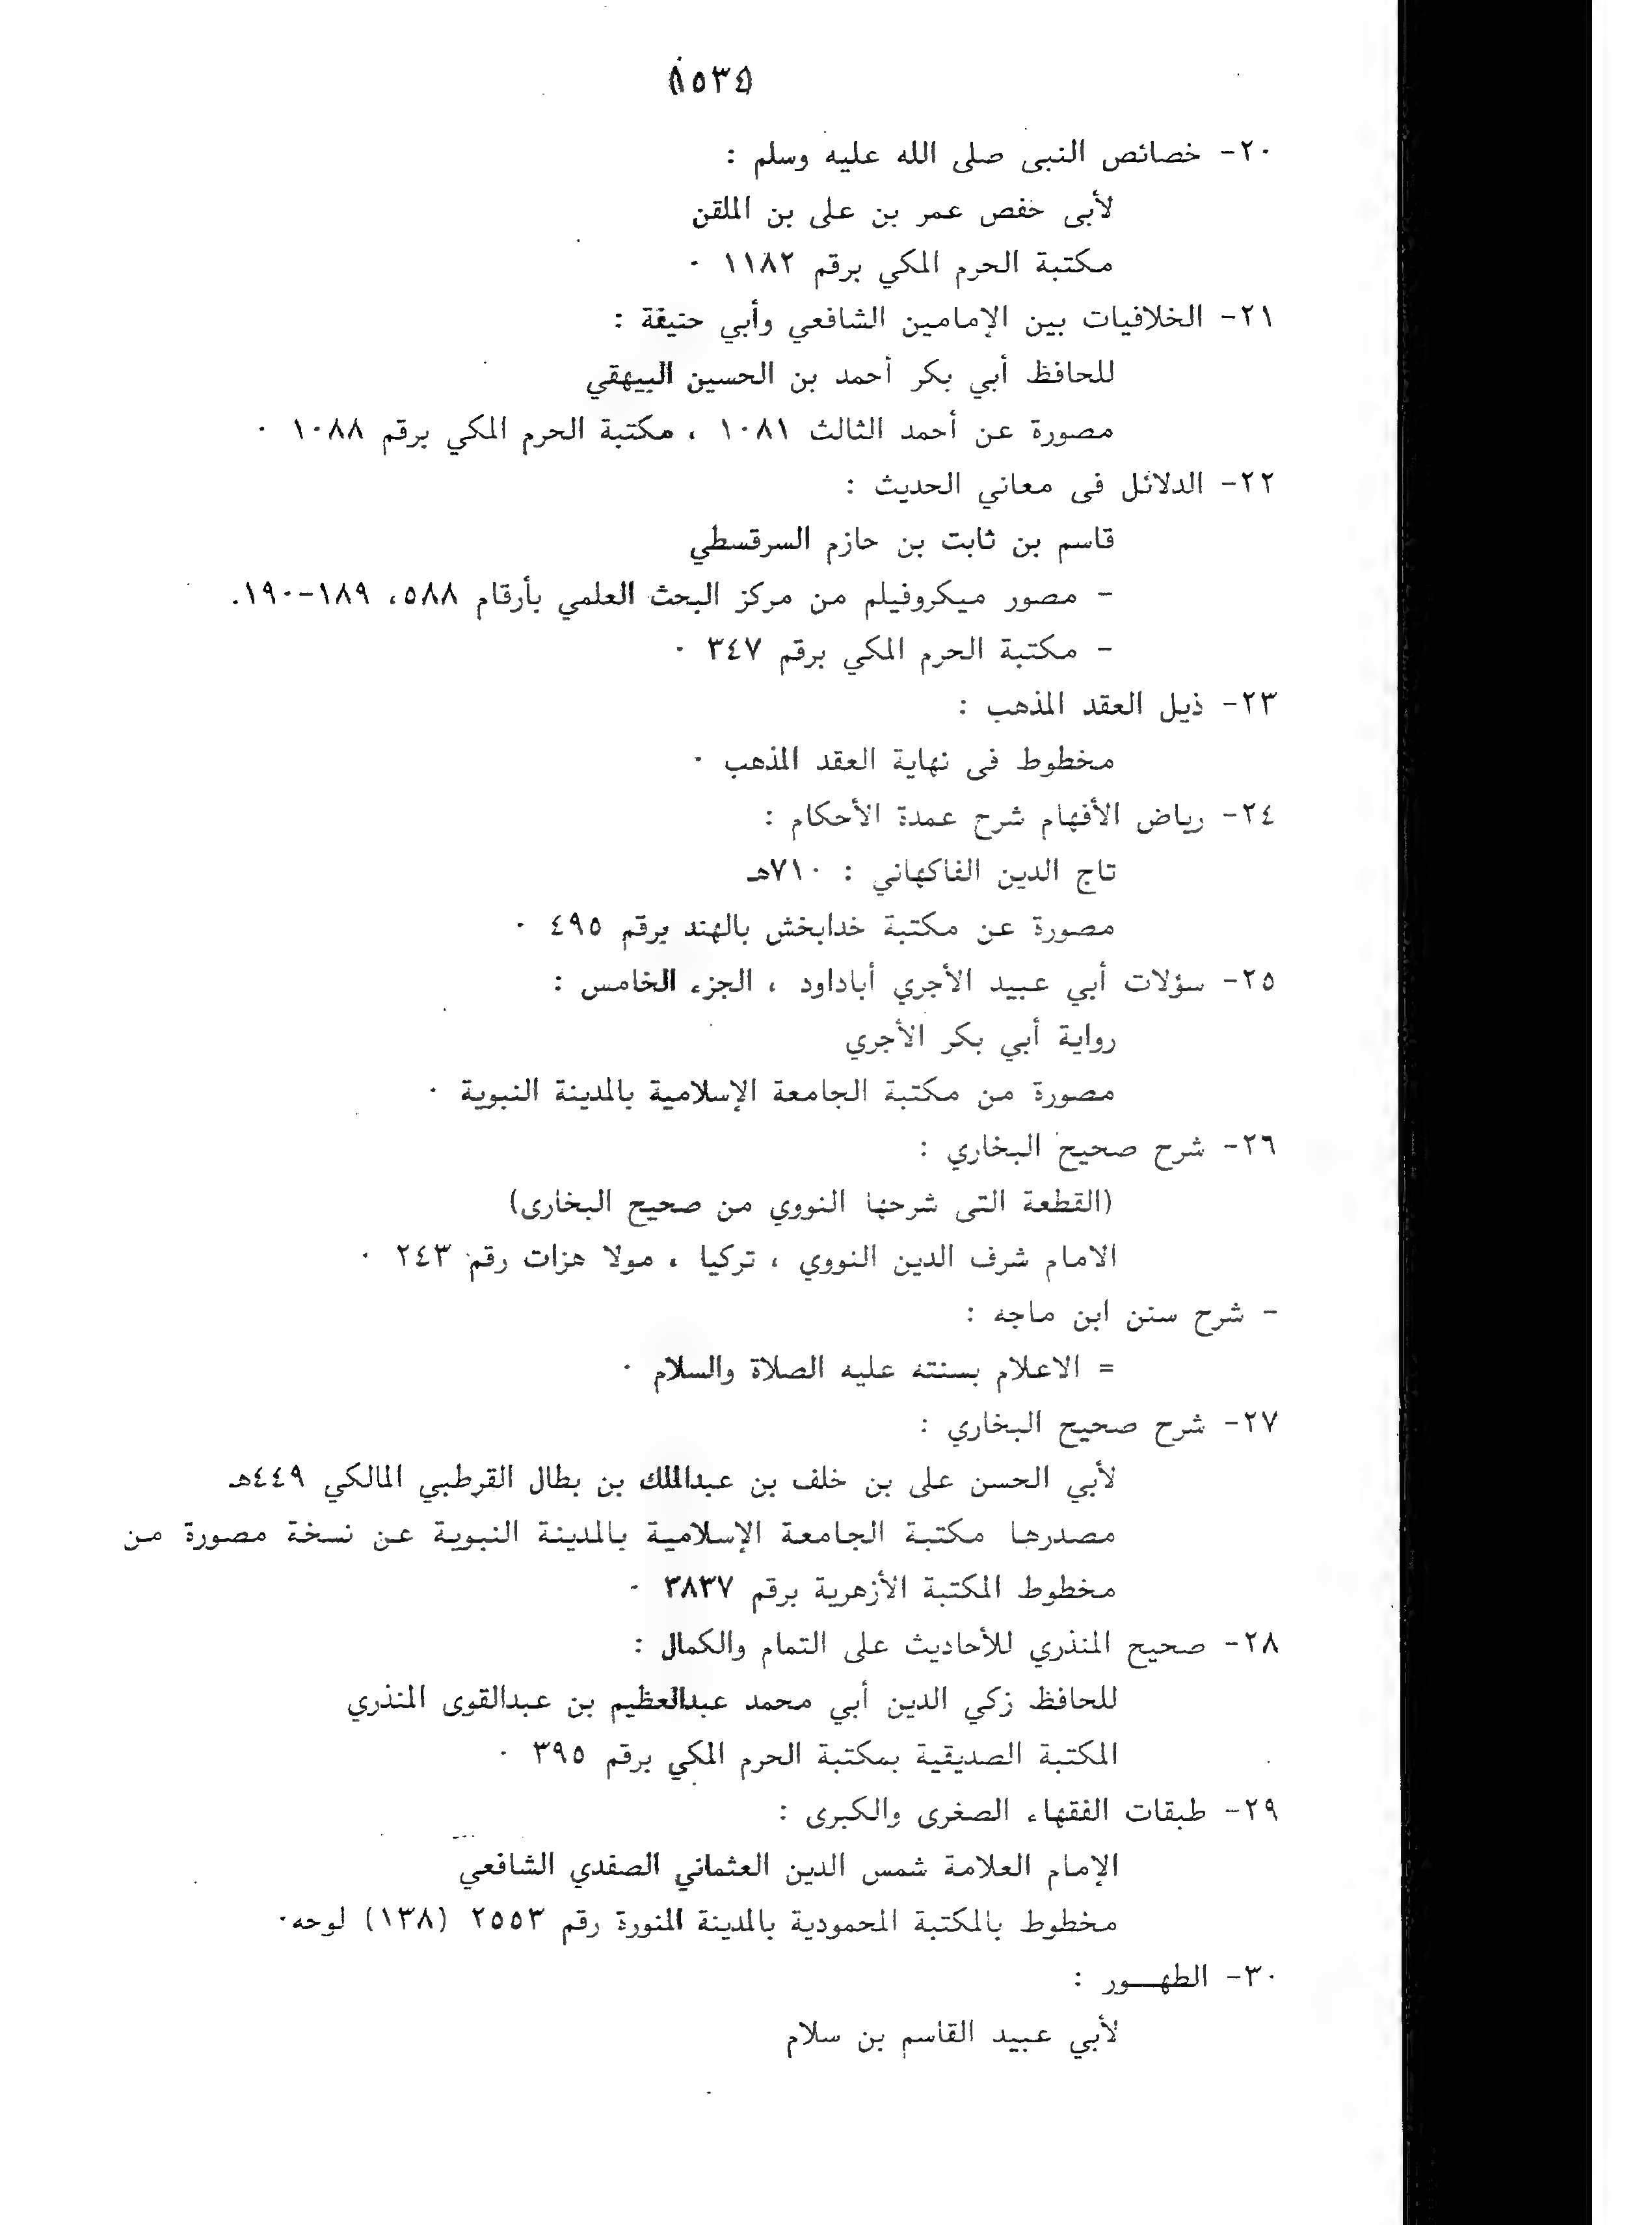 (١٥٣٤)
٢٠- خصائص النبى صلى الله عليه وسلم :
لأبى حفص عمر بن على بن الملقن
مكتبة الحرم المكي برقم ١١٨٢ ٠
٢١- الخلافيات بين الإمامين الشافعي وأبي حنيفة :
للحافظ أبي بكر أحمد بن الحسين البيهقي
مصورة عن أحمد الثالث ١٠٨١ ، مكتبة الحرم المكي برقم ١٠٨٨ ٠
٢٢- الدلائل فى معاني الحديث :
قاسم بن ثابت بن حازم السرقسطي
- مصور ميكروفيلم من مركز البحث العلمي بأرقام ٥٨٨، ١٨٩-١٩٠.
- مكتبة الحرم المكي برقم ٣٤٧ ٠
٢٣- ذيل العقد المذهب :
مخطوط فى نهاية العقد المذهب ٠
٢٤- رياض الأفهام شرح عمدة الأحكام :
تاج الدين الفاكهاني : ٧١٠هـ
مصورة عن مكتبة خدابخش بالهند برقم ٤٩٥ ٠
٢٥- سؤلات أبي عبيد الأجري أباداود ، الجزء الخامس :
رواية أبي بكر الأجري
مصورة من مكتبة الجامعة الإسلامية بالمدينة النبوية ٠
٢٦- شرح صحيح البخاري :
(القطعة التى شرحها النووي من صحيح البخارى)
الامام شرف الدين النووي ، تركيا ، مولا هزات رقم ٢٤٣ ٠
- شرح سنن ابن ماجه :
= الاعلام بسنته عليه الصلاة والسلام ٠
٢٧- شرح صحيح البخاري :
لأبي الحسن على بن خلف بن عبدالملك بن بطال القرطبي المالكي ٤٤٩هـ
مصدرها مكتبة الجامعة الإسلامية بالمدينة النبوية عن نسخة مصورة من
مخطوط المكتبة الأزهرية برقم ٣٨٣٧ ٠
٢٨- صحيح المنذري للأحاديث على التمام والكمال :
للحافظ زكي الدين أبي محمد عبدالعظيم بن عبدالقوى المنذري
المكتبة الصديقية بمكتبة الحرم المكي برقم ٣٩٥ ٠
٢٩- طبقات الفقهاء الصغرى والكبرى :
الإمام العلامة شمس الدين العثماني الصفدي الشافعي
مخطوط بالمكتبة المحمودية بالمدينة المنورة رقم ٢٥٥٣ (١٣٨) لوحه٠
٣٠- الطهـــور :
لأبي عبيد القاسم بن سلام